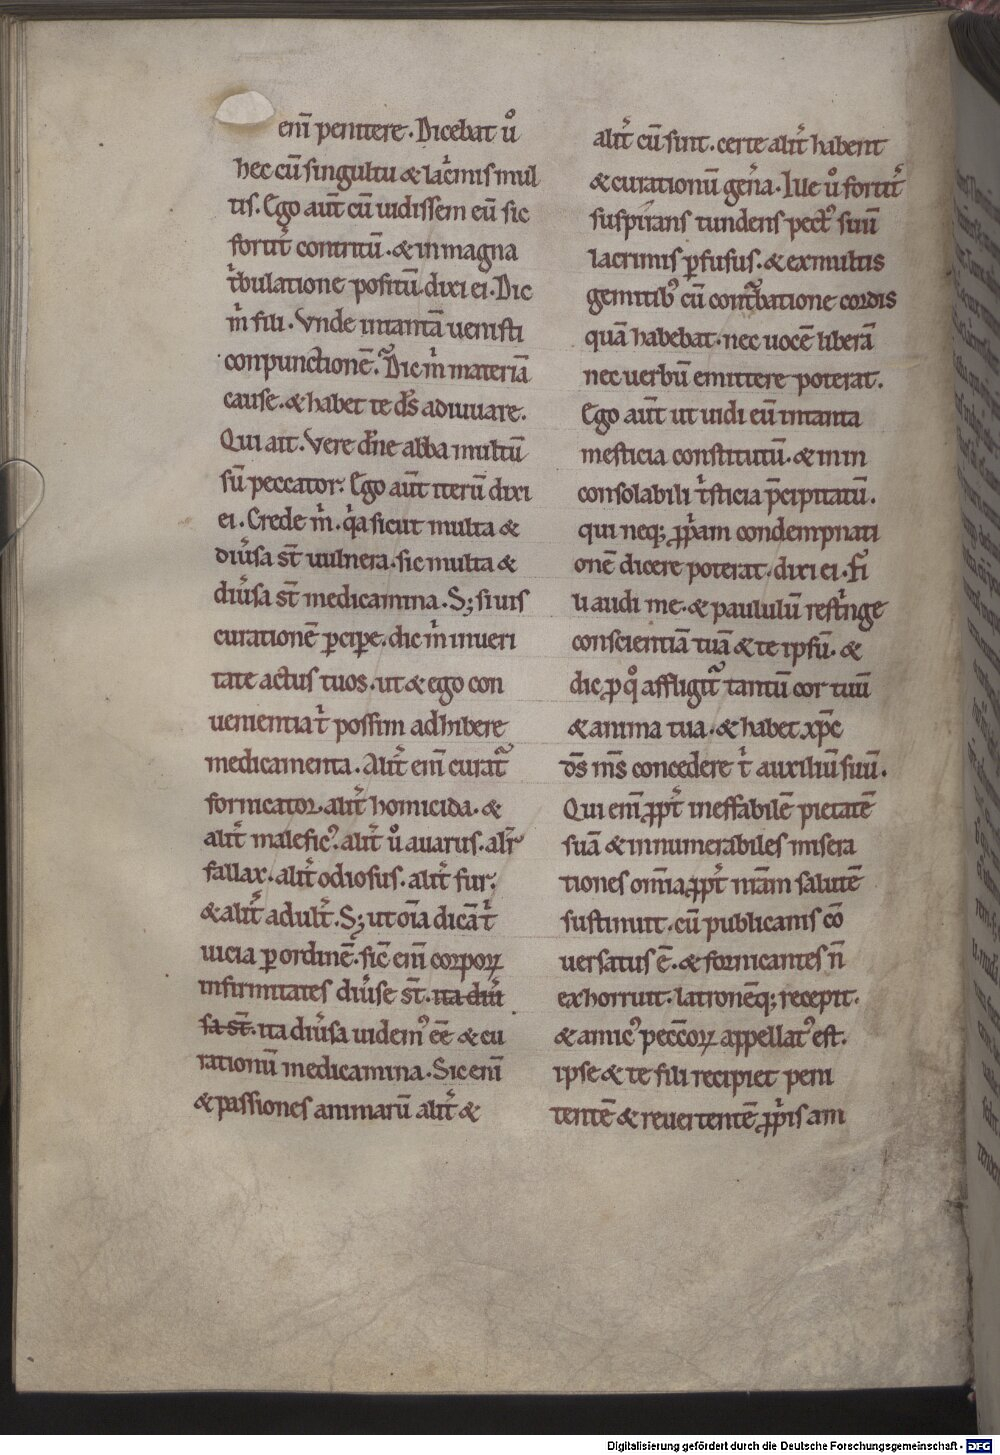 enī penitere. Dicebat u̾o
hec cū singultu & lac̾mis mul
tis. Ego aut̄ cū uidissem eū sic
fortit̾ contritū. & in magna
t̾bulatione positū. dixi ei. Dic
m̾ fili. Vnde in tantā uenisti
conpunctionē. Dic m̾ materiā
cause. & habet te ds̄ adiuuare.
Qui ait. Vere dn̄e abba multū
sū peccator. Ego aut̄ iterū dixi
ei. Crede m̾. q̾a sicut multa &
diu̾sa st̄ uulnera. sic multa &
diu̾sa st̄ medicamina. S; si uis
curationē ꝑciꝑe. dic m̾ in ueri
tate actus tuos. ut & ego con
uenientia t̾ possim adhibere
medicamenta. Alit̾ enī curat̾
fornicator. alit̾ homicida. &
alit̾ malefic᾽. alit̾ u̾o auarus. alit̾
fallax. alit̾ odiosus. alit̾ fur.
& alit̾ adult̾. S; ut oīa dicā t̾
uicia ꝑ ordinē. sic̄ enī corporꝝ
infirmitates diu̾se st̄. ita diu̾
sa st̄. ita diu̾sa uidem᾽ eē & cu
rationū medicamina. Sic enī
& passiones animarū alit̾ &
alit̾ cū sint. certe alit̾ habent
& curationū gen̾a. Iłłe u̾o fortit̾
suspirans tundens pect᾽ suū
lacrimis ꝑfusus. & ex multis
gemitib᾽ cū cont̾batione cordis
quā habebat. nec uocē liberā
nec uerbū emittere poterat.
Ego aut̄ ut uidi eū in tanta
mesticia constitutū. & in in
consolabili t̾sticia p̄cipitatū.
qui neq; ꝓp̾am condempnati
onē dicere poterat. dixi ei. Fi
li audi me. & paululū rest̾nge
conscientiā tuā & te ipsū. &
dic ꝓ q̊ affligit̾ tantū cor tuū
& anima tua. & habet xp̄c
ds̄ ms̄ concedere t̾ auxiliū suū.
Qui enī ꝓpt̾ ineffabilē pietatē
suā & innumerabiles misera
tiones omīa ꝓpt̾ nr̄am salutē
sustinuit. cū publicanis cō
uersatus ē. & fornicantes n̄
exhorruit. latronēq; recepit.
& amic᾽ pecc̄orꝝ appellat᾽ est.
ipse & te fili recipiet peni
tentē & reuertentē ꝓp̾is am
Digitalisierung gefördert durch die Deutsche Forschungsgemeinschaft - DFG